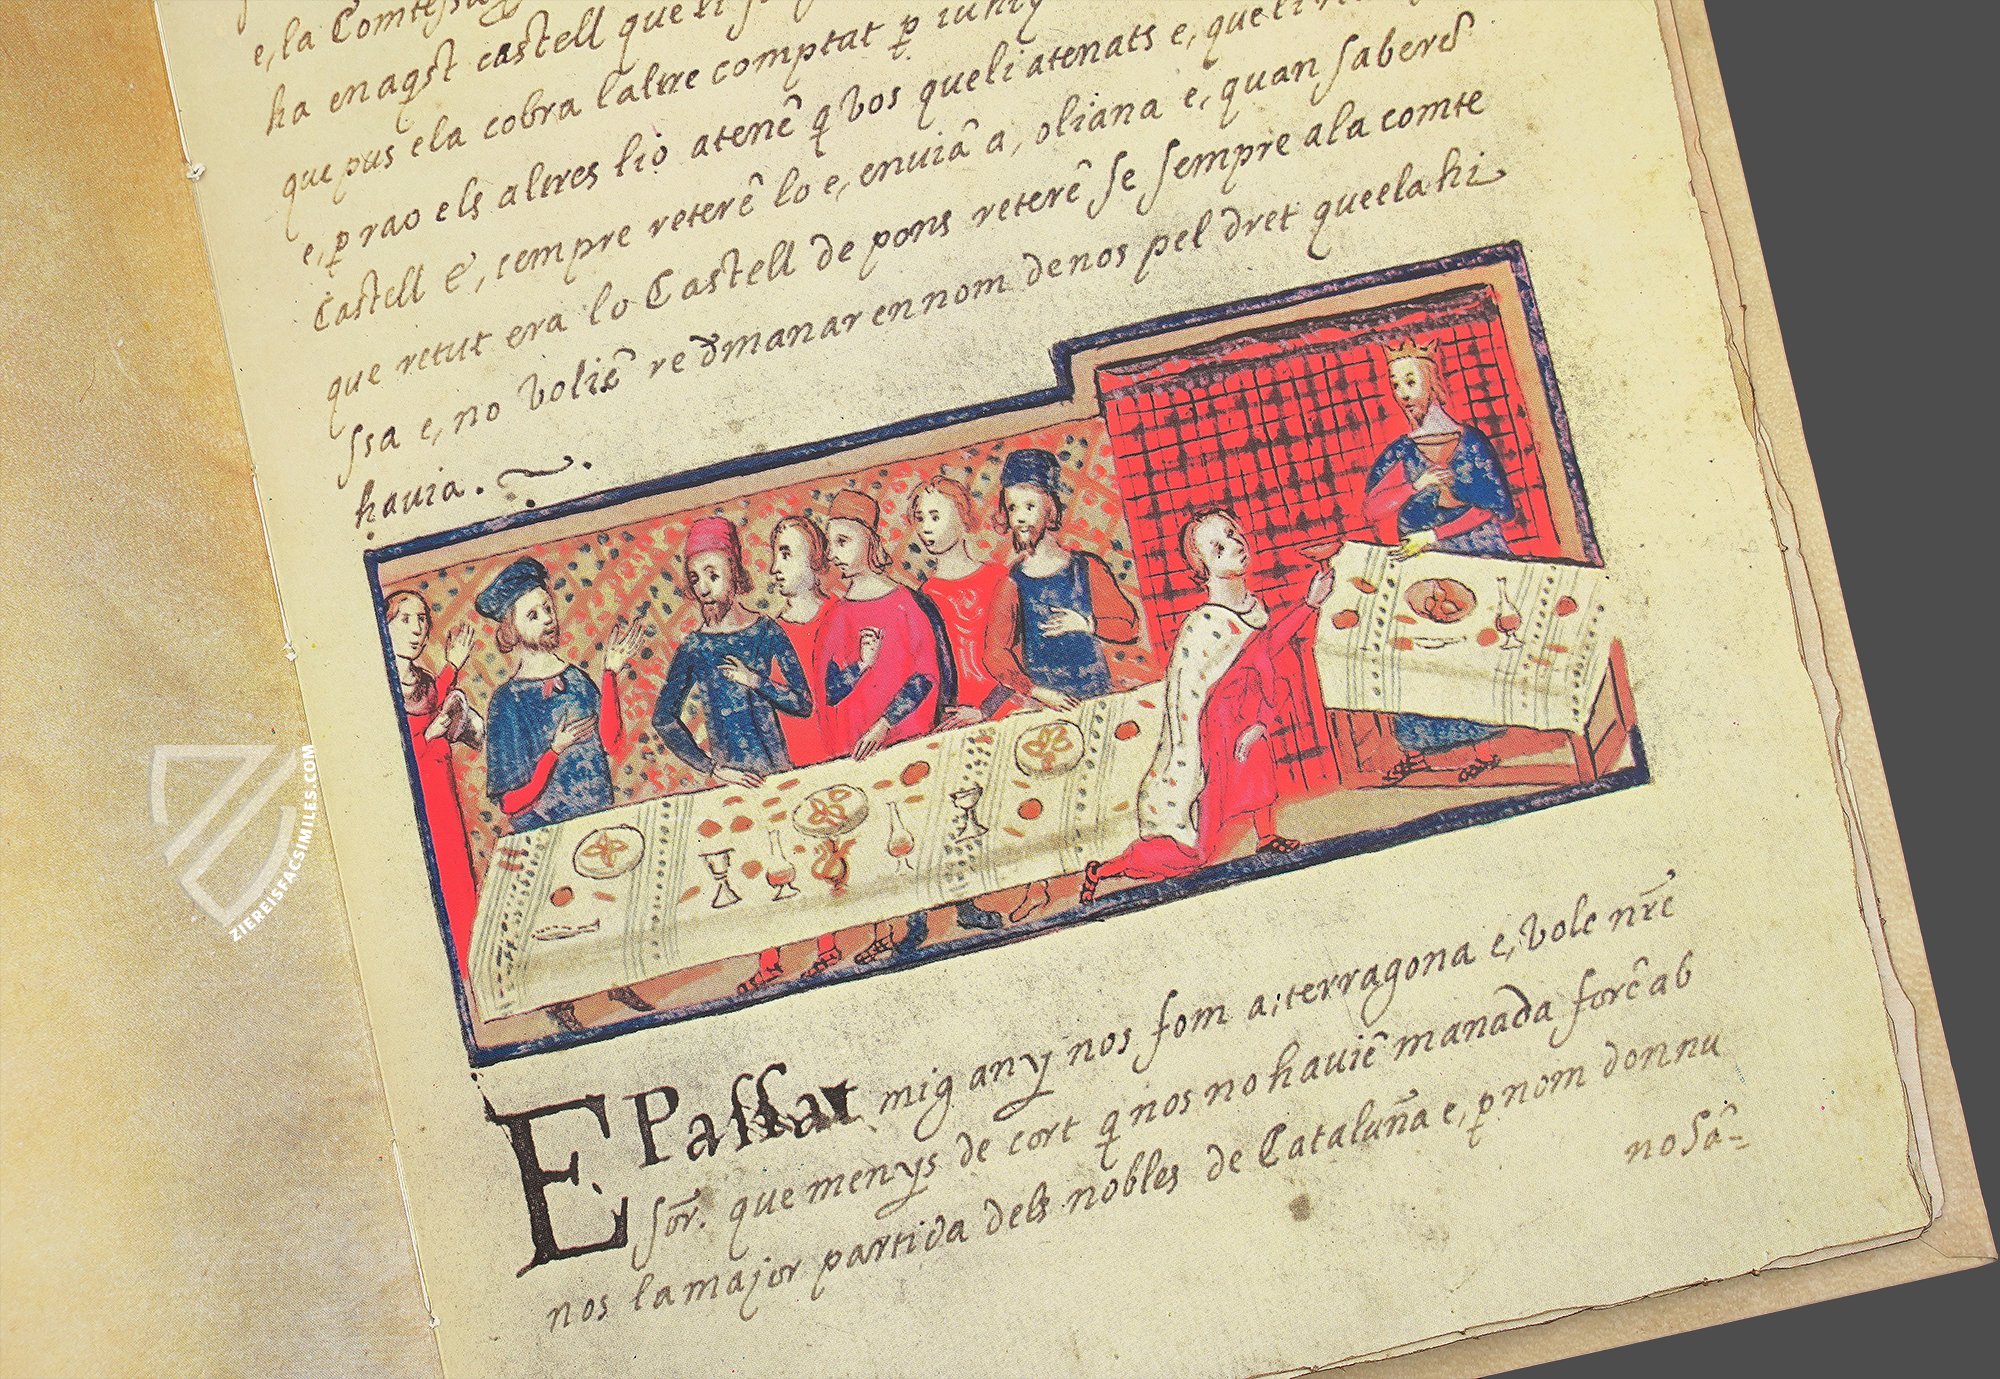 e, la Comtessa
ha enaq̃st castell que li
que pus e la cobra laltre comptat ꝑ
e, ꝑ rao els altres lio atenẽ q̃ vos queli atenats e, que li
Castell e, sempre reterẽ lo e, enviã a, oliana e, quan saberẽ
que retut era lo Castell de pons reterẽ se sempre ala comte
ssa e, no voliẽ re dmanar en nom de nos pel dret que ela hi
havia.
E Passat mig any nos fom a, terragona e, vole nr̃e
sor̃. que menys de cort q̃ nos no haviẽ manada forẽ ab
nos la major partida dels nobles de Cataluña e, ꝑ nom donnu
no Sã-
ZIEREISFACSIMILES.COM